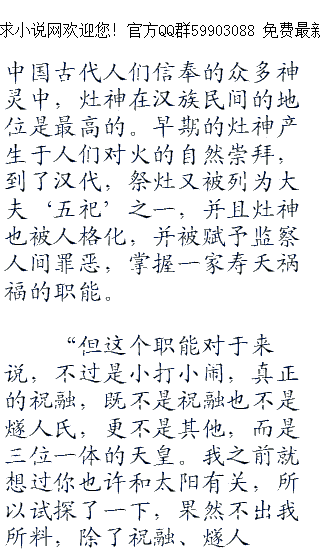 求小说网欢迎您！官方QQ群59903088 免费最新
中国古代人们信奉的众多神
灵中，灶神在汉族民间的地
位是最高的。早期的灶神产
生于人们对火的自然崇拜，
到了汉代，祭灶又被列为大
夫‘五祀’之一，并且灶神
也被人格化，并被赋予监察
人间罪恶，掌握一家寿夭祸
福的职能。
“但这个职能对于来
说，不过是小打小闹，真正
的祝融，既不是祝融也不是
燧人氏，更不是其他，而是
三位一体的天皇。我之前就
想过你也许和太阳有关，所
以试探了一下，果然不出我
所料，除了祝融、燧人